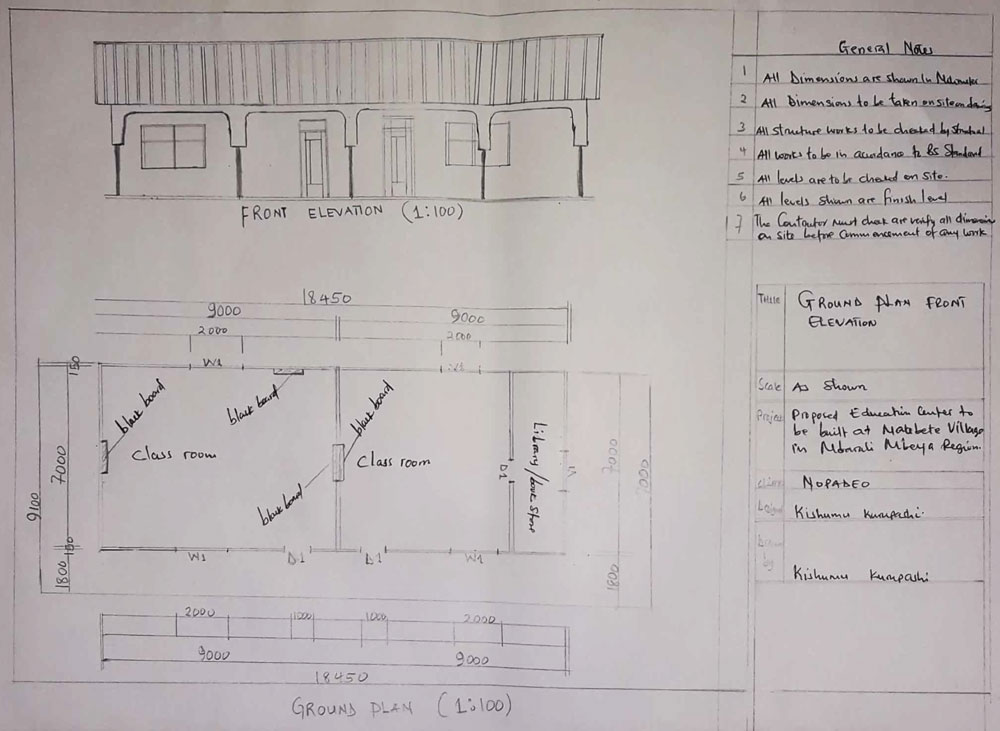 FRONT ELEVATION (1:100)
18450
9000
9000
2000
2000
W1
150
black board
black board
black board
Class room
Class room
black board
Library/book store
D1
7000
9100
150
1800
7000
1800
W1
D1
D1
W1
2000
1000
1000
2000
9000
9000
18450
GROUND PLAN (1:100)
General Notes
1 All Dimensions are shown in
2 All Dimensions to be taken on site
3 All structure works to be checked by
4 All works to be in to BS Standard
5 All levels are to be checked on site.
6 All levels shown are finish level
7 The Contractor must check verify all
on site before commencement of any work
Title
GROUND PLAN FRONT
ELEVATION
Scale
As Shown
Project
Proposed Education Center to
be built at Matebete Village
in Mbarali Mbeya Region.
Client
NOPADEO
Kishumu Kurupashi
Kishumu Kurupashi